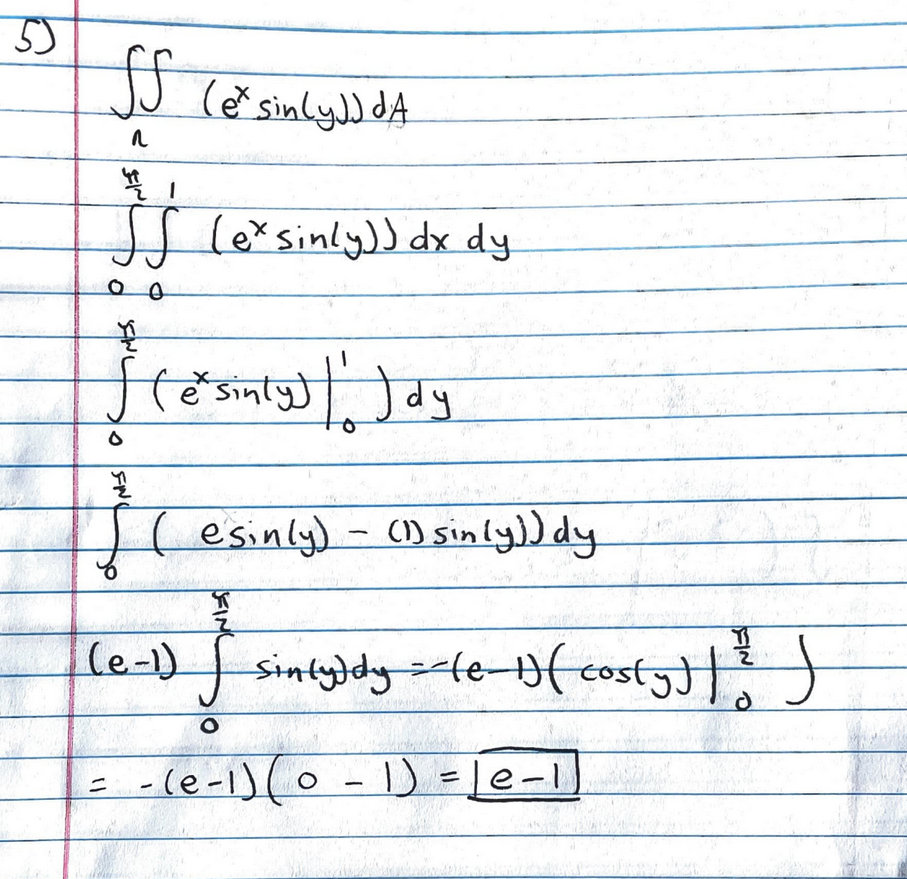 5)
∬_R (e^x sin(y)) dA
∫_0^{π/2} ∫_0^1 (e^x sin(y)) dx dy
∫_0^{π/2} (e^x sin(y) |_0^1 ) dy
∫_0^{π/2} ( e sin(y) - (1) sin(y)) dy
(e-1) ∫_0^{π/2} sin(y) dy = -(e-1)( cos(y) |_0^{π/2} )
= -(e-1)( 0 - 1) = e-1